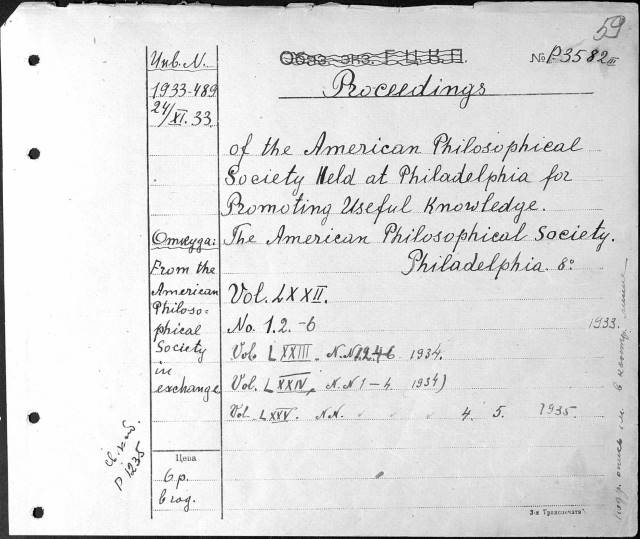 59
Инв. N.
Обяз. экз. Г. Ц. К. П.
№ P3582 III
1933-489
24/XI. 33.
Proceedings
of the American Philosophical
Society Held at Philadelphia for
Promoting Useful Knowledge.
Откуда:
The American Philosophical Society.
Philadelphia. 8°
From the
American
Philoso=
phical
Society
in
exchange
Vol. LXXII.
No. 1. 2. -6
1933.
Vol. LXXIII. N.N. 1934.
Vol. LXXIV, N.N 1-4 1934)
Vol. LXXV. N.N. 4. 5. 1935.
P 1235
Цена
6 р.
в год.
3-я Транспечать